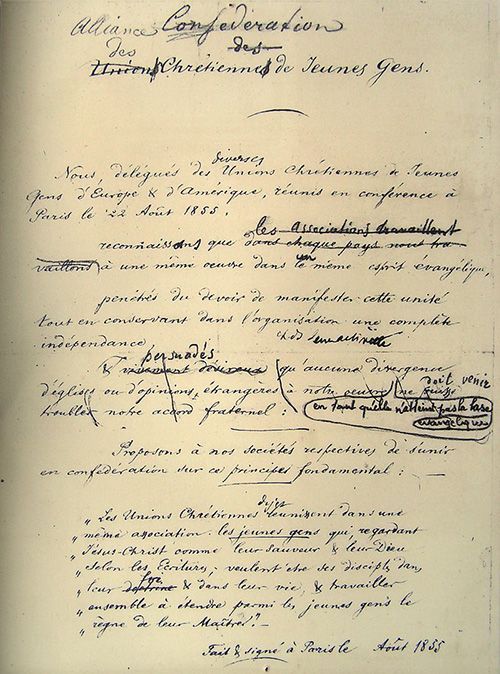 Alliance Confédération
des des
Unions Chrétiennes de Jeunes Gens.
diverses
Nous, délégués des Unions Chrétiennes de Jeunes
Gens d'Europe & d'Amérique, réunis en conférence à
Paris le 22 Août 1855,
les associations travaillent
reconnaissons que dans chaque pays nous tra-
vaillons à une même oeuvre dans le même esprit évangélique,
un
pénétrés du devoir de manifester cette unité
tout en conservant dans l'organisation une complète
indépendance
persuadés
& vivement désireux qu'aucune divergence
d'églises ou d'opinions, étrangères à notre oeuvre, ne puisse
doit venir
troubler notre accord fraternel :
en tant qu'elle n'atteint pas la base
évangélique
Proposons à nos sociétés respectives de s'unir
en confédération sur ce principes fondamental :
"Les Unions Chrétiennes réunissent dans une
"même association les jeunes gens qui regardant
"Jésus-Christ comme leur Sauveur & leur Dieu
"selon les Ecritures, veulent etre ses disciples dans
foi
"leur doctrine & dans leur vie, & travailler
"ensemble à étendre parmi les jeunes gens le
"règne de leur Maître." —
Fait & signé à Paris le Août 1855